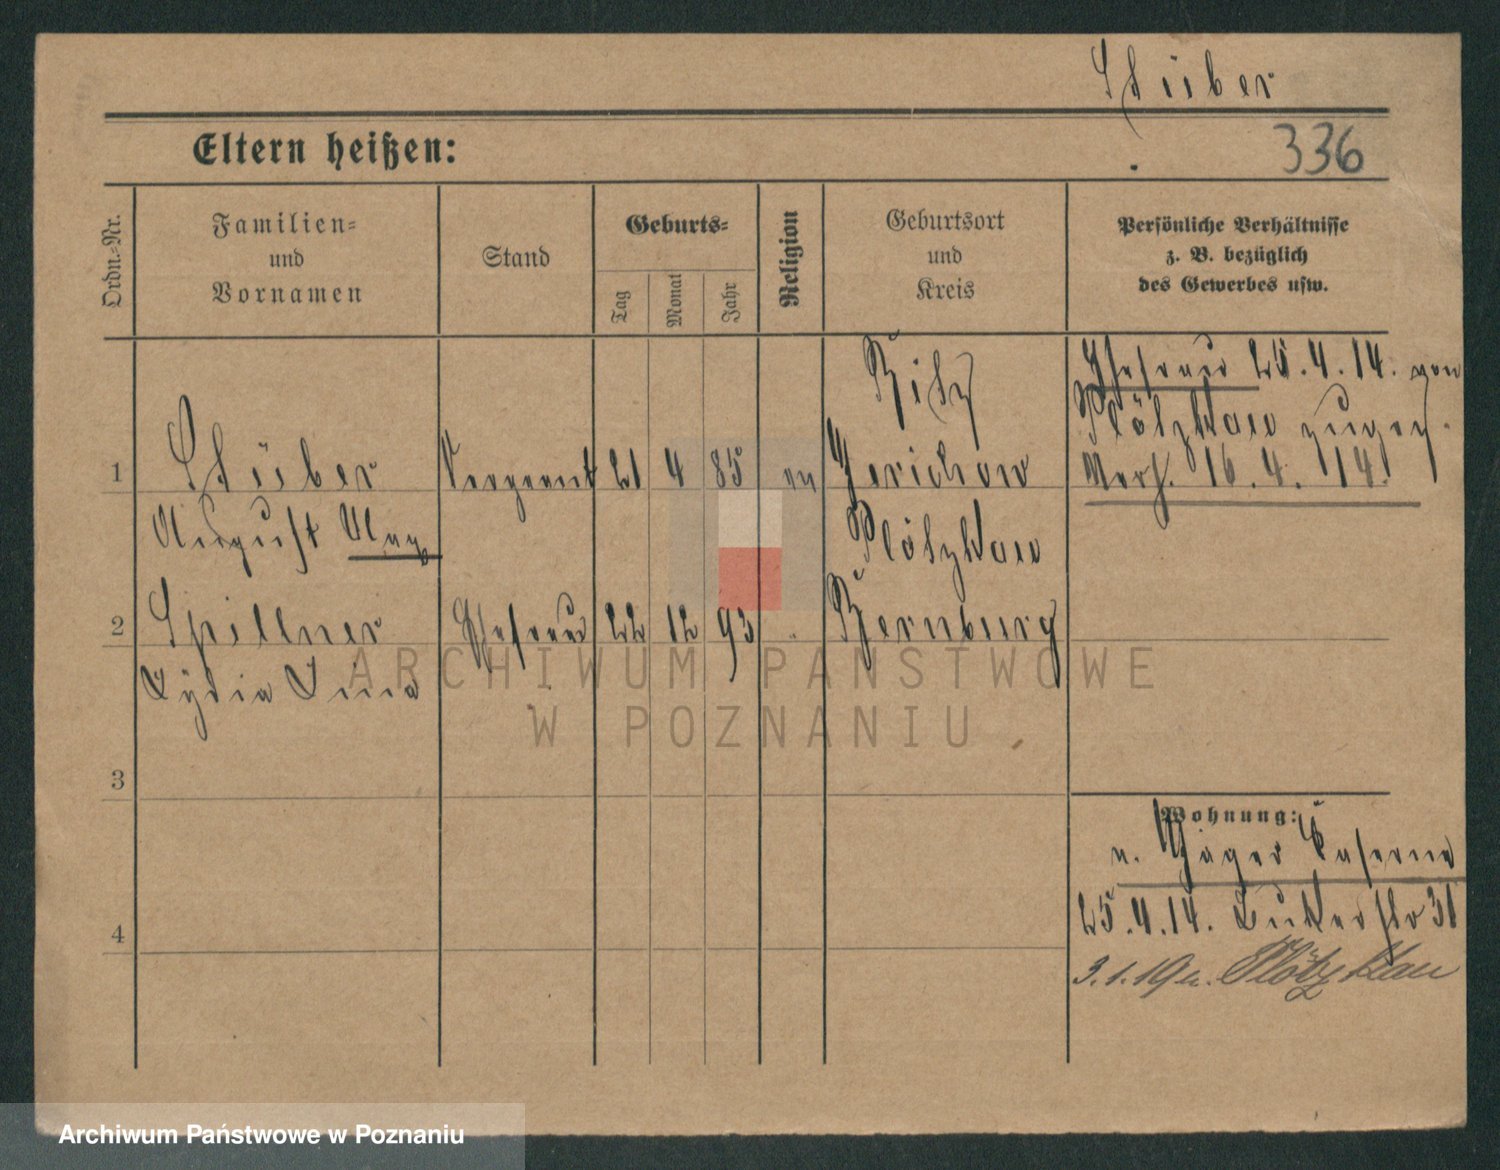 Stüber
Eltern heißen:
336
Ordn.-Nr.
Familien-
und
Vornamen
Stand
Geburts-
Tag
Monat
Jahr
Religion
Geburtsort
und
Kreis
Persönliche Verhältnisse
z. B. bezüglich
des Gewerbes usw.
Ehefrau 25.4.14. von
Plötzkau zugez.
Verh. 16.4.14.
1
Stüber
August
Sergeant
21
4
85
ev
Jerichow
2
Spillner
Lydia
Ehefrau
22
12
93
"
Plötzkau
Bernburg
3
Wohnung:
n. Jäger Kaserne
25.4.14. Bukerstr 31
4
3.1.19 n. Plötzkau
ARCHIWUM PAŃSTWOWE
W POZNANIU
Archiwum Państwowe w Poznaniu